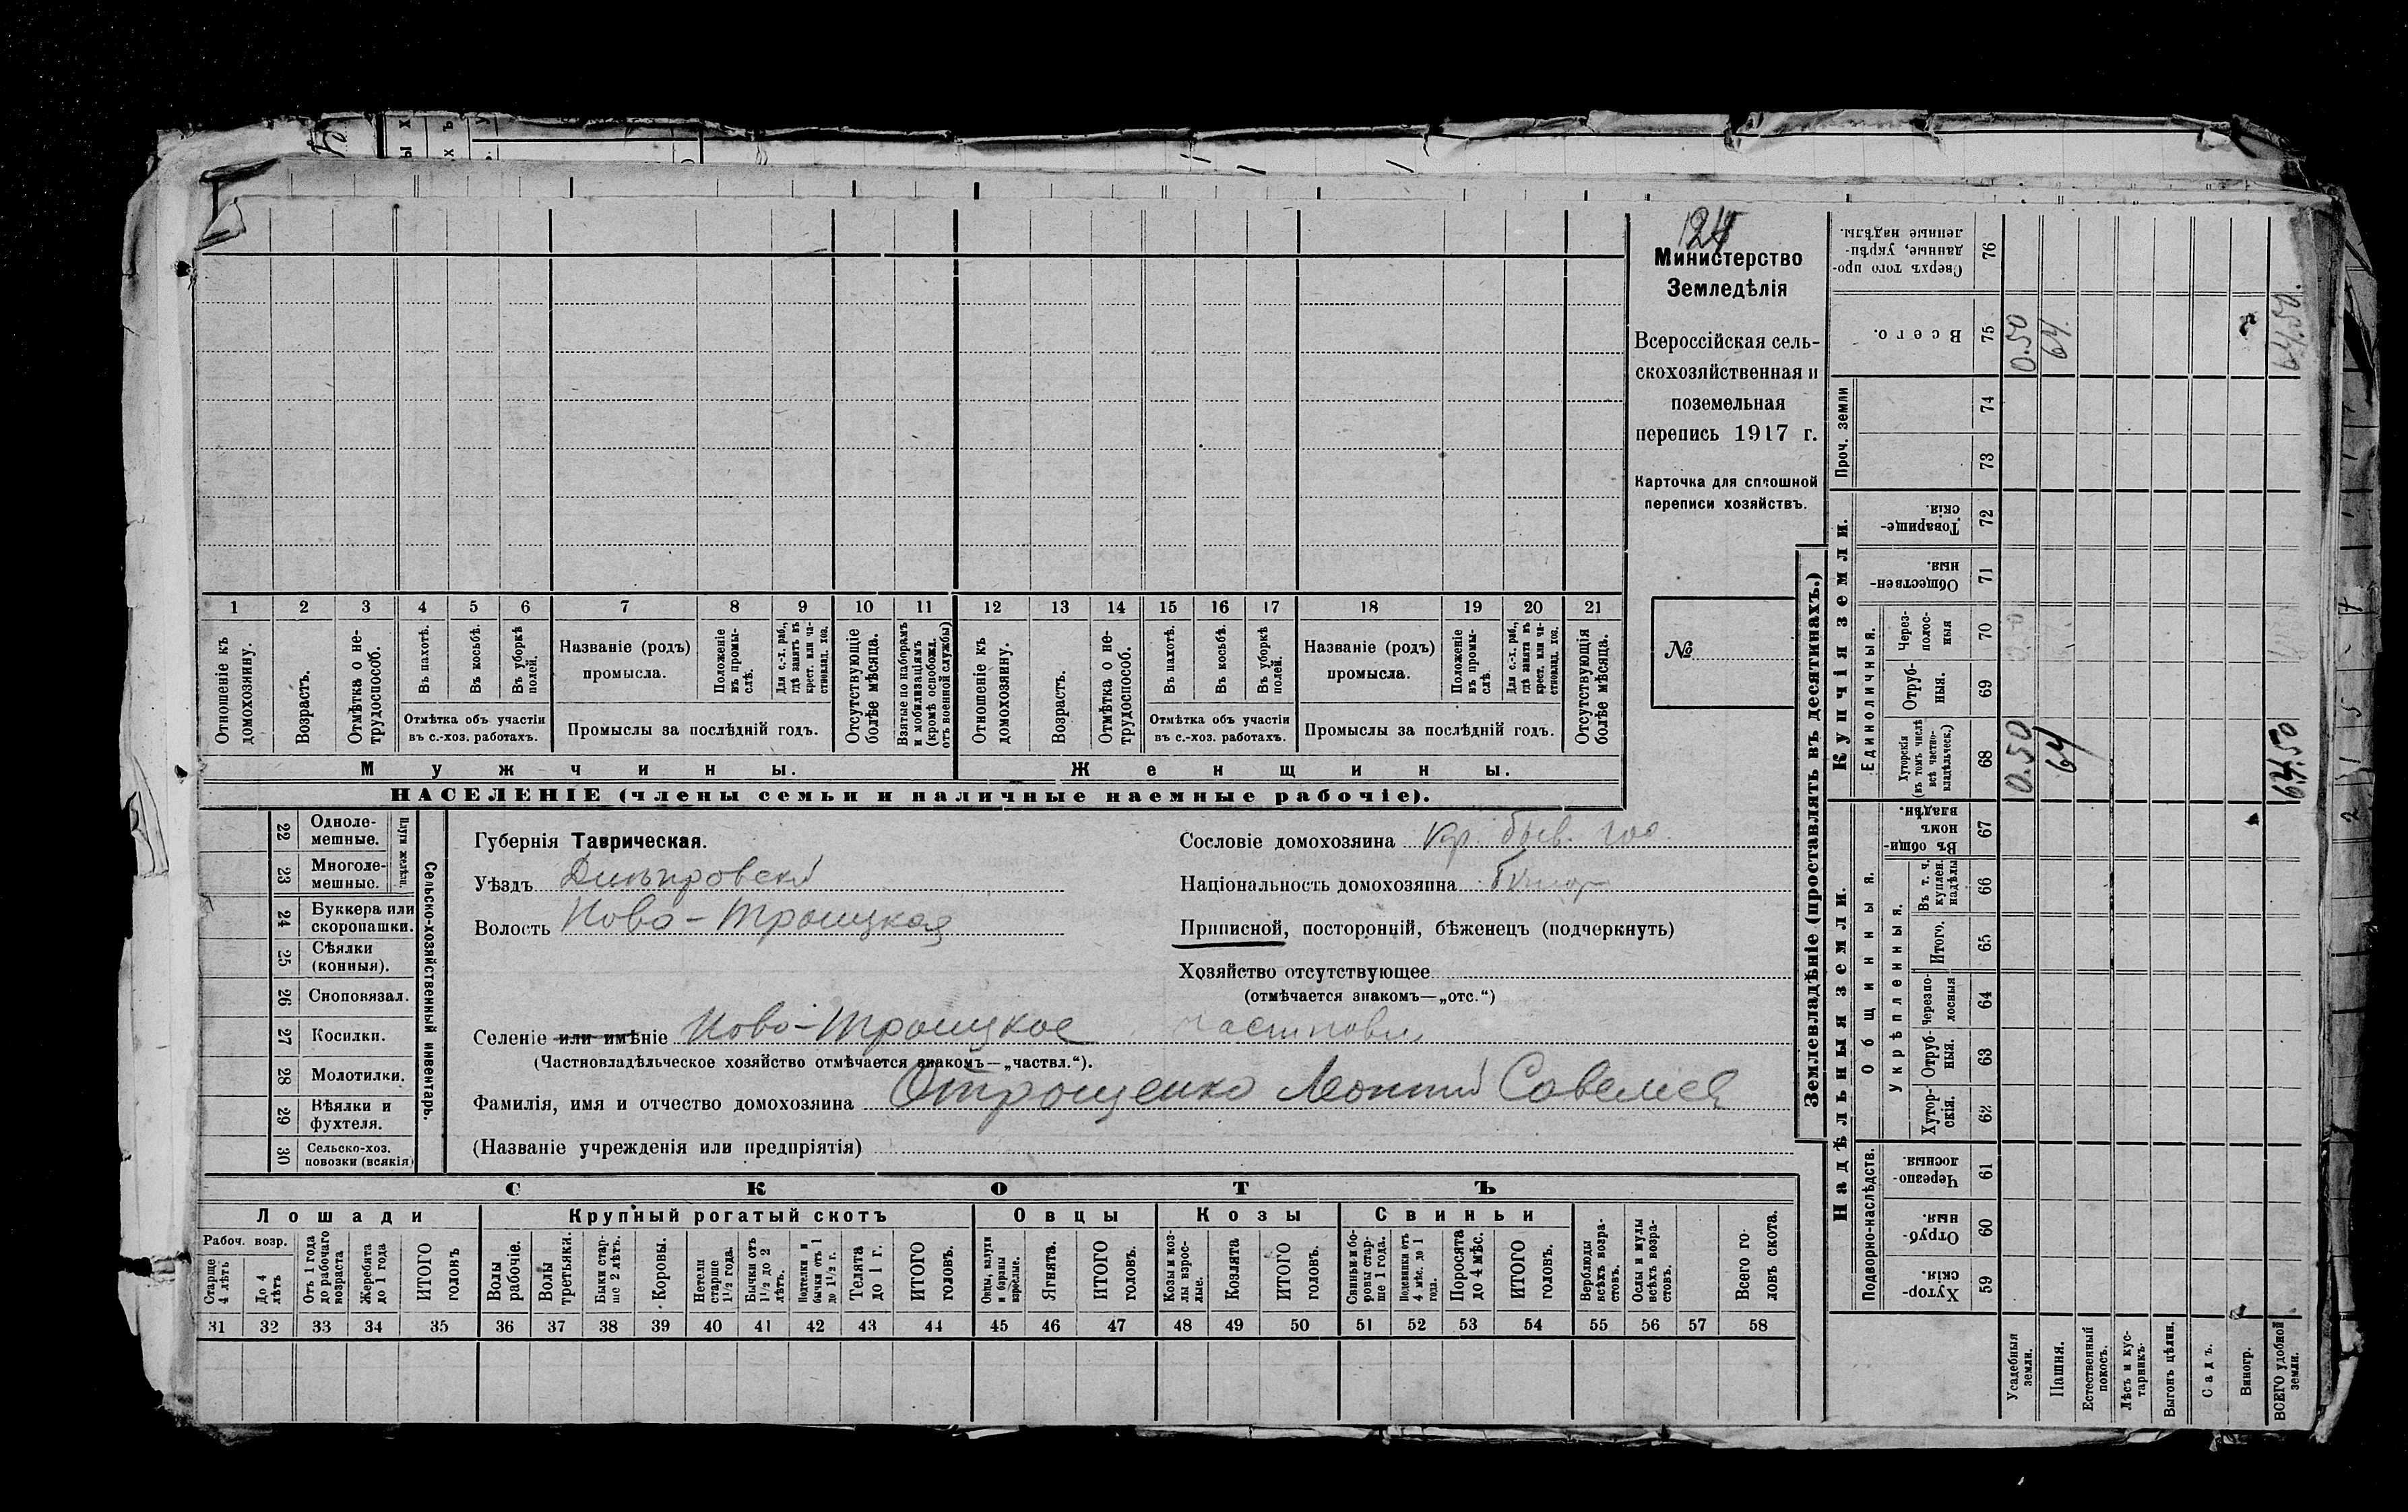 124
Министерство
Земледѣлія
Всероссійская сель-
скохозяйственная и
поземельная
перепись 1917 г.
Карточка для сплошной
переписи хозяйствъ.
№
1 2 3 4 5 6 7 8 9 10 11 12 13 14 15 16 17 18 19 20 21
Отношеніе къ домохозяину.
Возрастъ.
Отмѣтка о не-трудоспособ.
Въ пахотѣ.
Въ косьбѣ.
Въ уборкѣ полей.
Отмѣтка объ участіи
въ с.-хоз. работахъ.
Названіе (родъ)
промысла.
Положеніе въ промы-слѣ.
Для с.-х. раб., гдѣ занятъ въ крест. или ча-стновлад. хоз.
Промыслы за послѣдній годъ.
Отсутствующіе болѣе мѣсяца.
Взятые по наборамъ и мобилизаціямъ (кромѣ освобожд. отъ военной службы)
Отношеніе къ домохозяину.
Возрастъ.
Отмѣтка о не-трудоспособ.
Въ пахотѣ.
Въ косьбѣ.
Въ уборкѣ полей.
Отмѣтка объ участіи
въ с.-хоз. работахъ.
Названіе (родъ)
промысла.
Положеніе въ промы-слѣ.
Для с.-х. раб., гдѣ занята въ крест. или ча-стновлад. хоз.
Промыслы за послѣдній годъ.
Отсутствующія болѣе мѣсяца.
Мужчины.
Женщины.
НАСЕЛЕНІЕ (члены семьи и наличные наемные рабочіе).
22 Одноле-мешные.
23 Многоле-мешные.
Плуги желѣзн.
24 Буккера или скоропашки.
25 Сѣялки (конныя).
26 Сноповязал.
27 Косилки.
28 Молотилки.
29 Вѣялки и фухтеля.
30 Сельско-хоз. повозки (всякія)
Сельско-хозяйственный инвентарь.
Губернія Таврическая.
Уѣздъ Днѣпровскій
Волость Ново-Троицкая
Сословіе домохозяина Кр. быв. гос.
Національность домохозяина
Приписной, посторонній, бѣженецъ (подчеркнуть)
Хозяйство отсутствующее
(отмѣчается знакомъ—„отс.“)
Селеніе или имѣніе Ново-Троицкое частновл.
(Частновладѣльческое хозяйство отмѣчается знакомъ—„частвл.“).
Фамилія, имя и отчество домохозяина Отрощенко Леонтій Савелиев
(Названіе учрежденія или предпріятія)
СКОТЪ
Лошади
Крупный рогатый скотъ
Овцы
Козы
Свиньи
Рабоч. возр.
Старше 4 лѣтъ
До 4 лѣтъ
Отъ 1 года до рабочаго возраста
Жеребята до 1 года
ИТОГО головъ
Волы рабочіе.
Волы третьяки.
Быки стар-ше 2 лѣтъ.
Коровы.
Нетели старше 1½ года.
Бычки отъ 1½ до 2 лѣтъ.
Подтелки и бычки отъ 1 до 1½ г.
Телята до 1 г.
ИТОГО головъ.
Овцы, валухи и бараны взрослые.
Ягнята.
ИТОГО головъ.
Козы и коз-лы взрос-лые.
Козлята
ИТОГО головъ.
Свиньи и бо-ровы стар-ше 1 года.
Подсвинки отъ 4 мѣс. до 1 года.
Поросята до 4 мѣс.
ИТОГО головъ.
Верблюды всѣхъ возра-стовъ.
Ослы и мулы всѣхъ возра-стовъ.
Всего го-ловъ скота.
31 32 33 34 35 36 37 38 39 40 41 42 43 44 45 46 47 48 49 50 51 52 53 54 55 56 57 58
Землевладѣніе (проставлять въ десятинахъ.)
Надѣльныя земли.
Купчія земли.
Проч. земли
Подворно-наслѣдств.
Общинныя.
Укрѣпленныя.
Единоличныя.
Сверхъ того про-данные, укрѣп-ленные надѣлы. 76
Всего. 75 0.50 64. 64.50.
74
73
Товарище-скія. 72
Обществен-ныя. 71
Через-полос-ныя 70
Отруб-ныя. 69
Хуторскія (въ томъ числѣ всѣ частно-владѣльческ.) 68 0.50 64 64.50
Въ общин-номъ владѣн. 67
Въ т. ч. куплен. надѣлы 66
Итого. 65
Черезпо-лосныя 64
Отруб-ныя. 63
Хутор-скія. 62
Черезпо-лосныя. 61
Отруб-ныя. 60
Хутор-скія. 59
Усадебныя земли.
Пашня.
Естественный покосъ.
Лѣсъ и кус-тарникъ.
Выгонъ цѣлин.
Садъ.
Виногр.
ВСЕГО удобной земли.